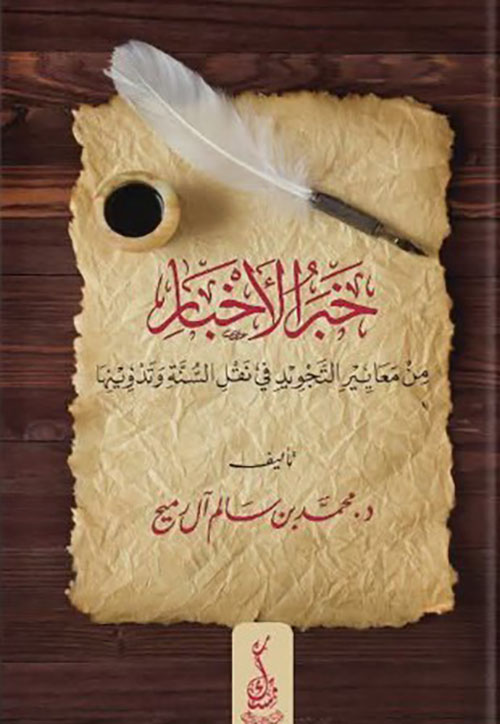 خَبَرُ الأَخْبَارِ
مِنْ مَعَايِيْرِ التَّجْوِيْدِ فِي نَقْلِ السُّنَّةِ وَتَدْوِيْنِهَا
تأليف
د. محمّد بن سالم آل رميح